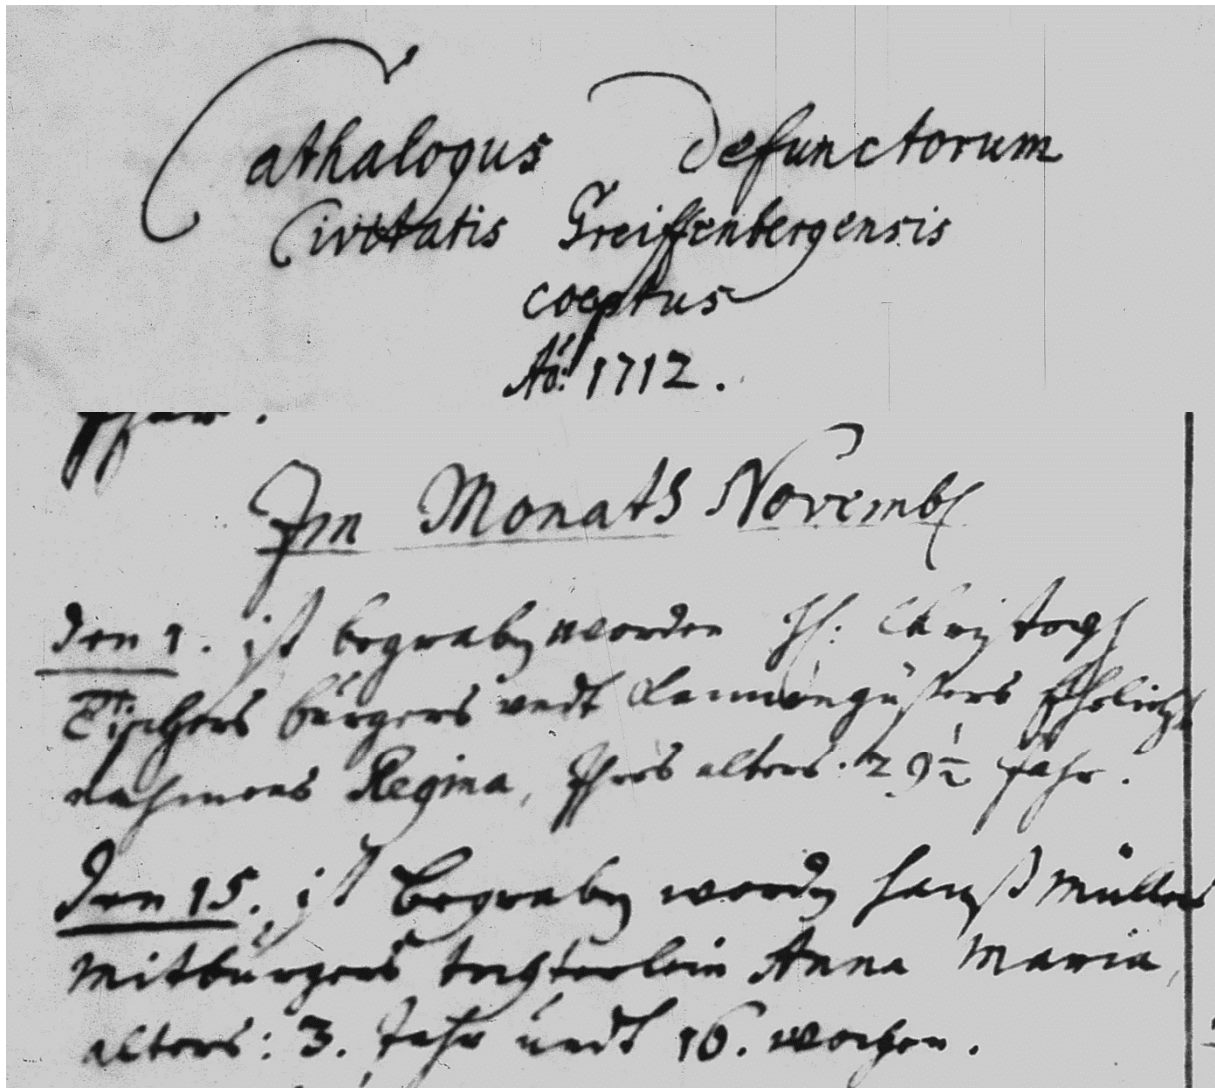 Cathalogus Defunctorum
Civitatis Greiffenbergensis
coeptus
Aõ: 1712.
Im Monats Novemb
Den 1. ist begraben worden H: Christoph
Tischers bürgers undt Kannengüßers Ehelich
nahmens Regina, Ihres alters. 29½ Jahr.
Den 15. ist Begraben worden Hanß Müllers
mitbürgers tochterlein Anna Maria,
alters: 3. Jahr undt 16. wochen.